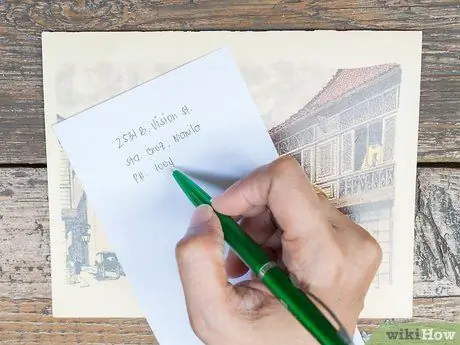 2534 B. Vision st.
sta. Cruz, Manila
PH. 1004
wikiHow